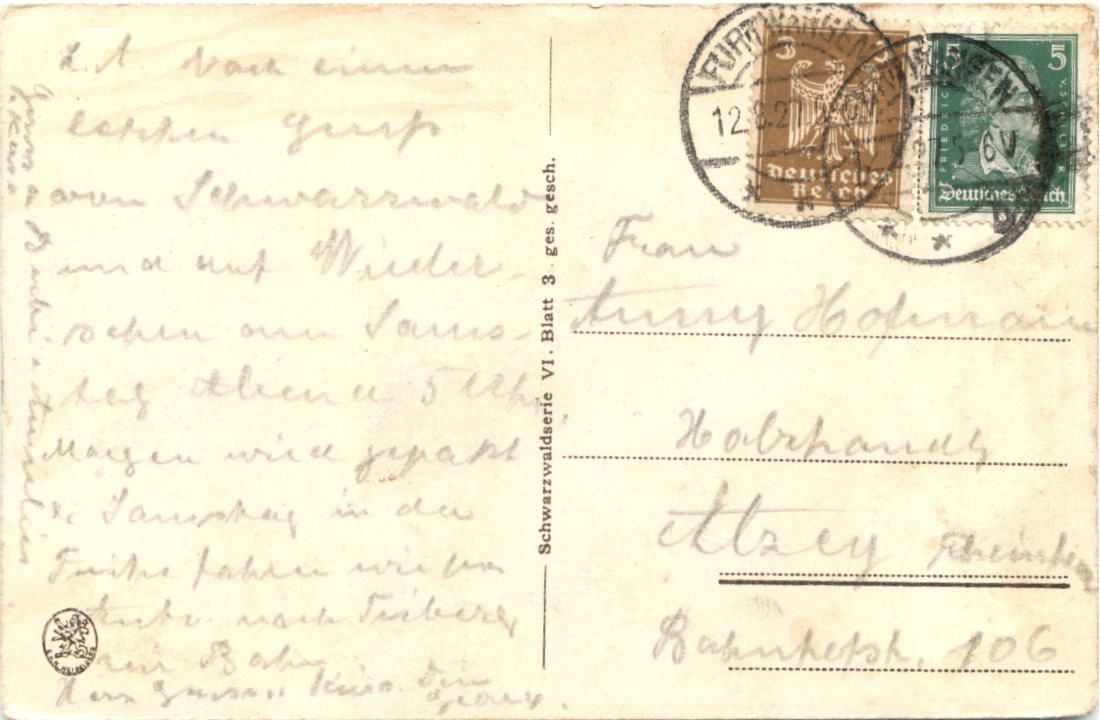 L. A. Noch einen
letzten Gruß
vom Schwarzwald
und auf Wieder-
sehen am Sams-
tag Abend 5 Uhr.
Morgen wird gepakt
u. Samstag in der
Frühe fahren wir per
Auto nach Triberg
zur Bahn
Herz. Grüsse u. Kuss Dein
Georg.
Schwarzwaldserie VI. Blatt 3 ges. gesch.
FURTWANGEN
12.8.27.5-6V
3 3
Deutsches
Reich
FURTWANGEN
5-6V
5 5
Deutsches Reich
Frau
Anny Hofmann
Holzhandlg
Alzey Rheinhessen
Bahnhofstr. 106